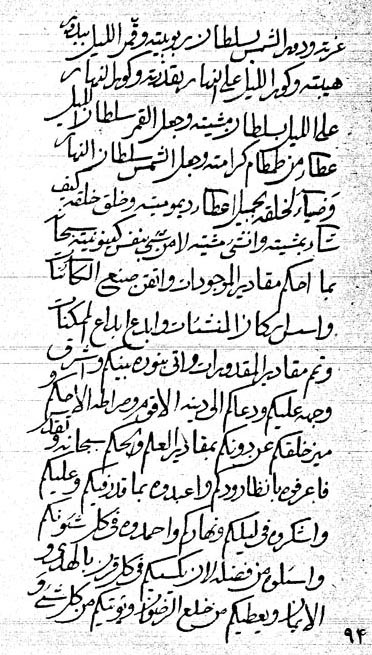 عزته ودور الشمس بسلطان ربوبيته وقمر الليل ببداية
هيبته وكور الليل على النهار بقدرته وكور النهار
على الليل بسلطان مشيته وجعل القمر سلطان الليل
عطاء من طمطام كرامته وجعل الشمس سلطان النهار
وضياء لخلقه بجميل اعطاء ديموميته وخلق خلقه كيف
شاء بمشيته وانشئ مشيته لا من شئ بنفس كينونيته سبحانه
بما احكم مقادير الموجودات واتقن صنع الكائنات
وابدع ابداع الممكنات
وتم مقادير المقدورات واتى بنوره بينكم واشرق
وجهه عليكم ودعاكم الى دينه الاقوم وصراطه الاحكم
ميز خلقكم عن دونكم بمقادير العلم والحكم سبحانه وتقدس
فاعرفوه واعبدوه بما قدر فيكم وعليكم
واشكروه في ليلكم ونهاركم واحمدوه في كل شئونكم
واسئلوه من فضله لان في كل قرب بالهدى و
الايمان ويعطيكم من خلع الرضوان ويؤتيكم من كل شئ و
٩٤